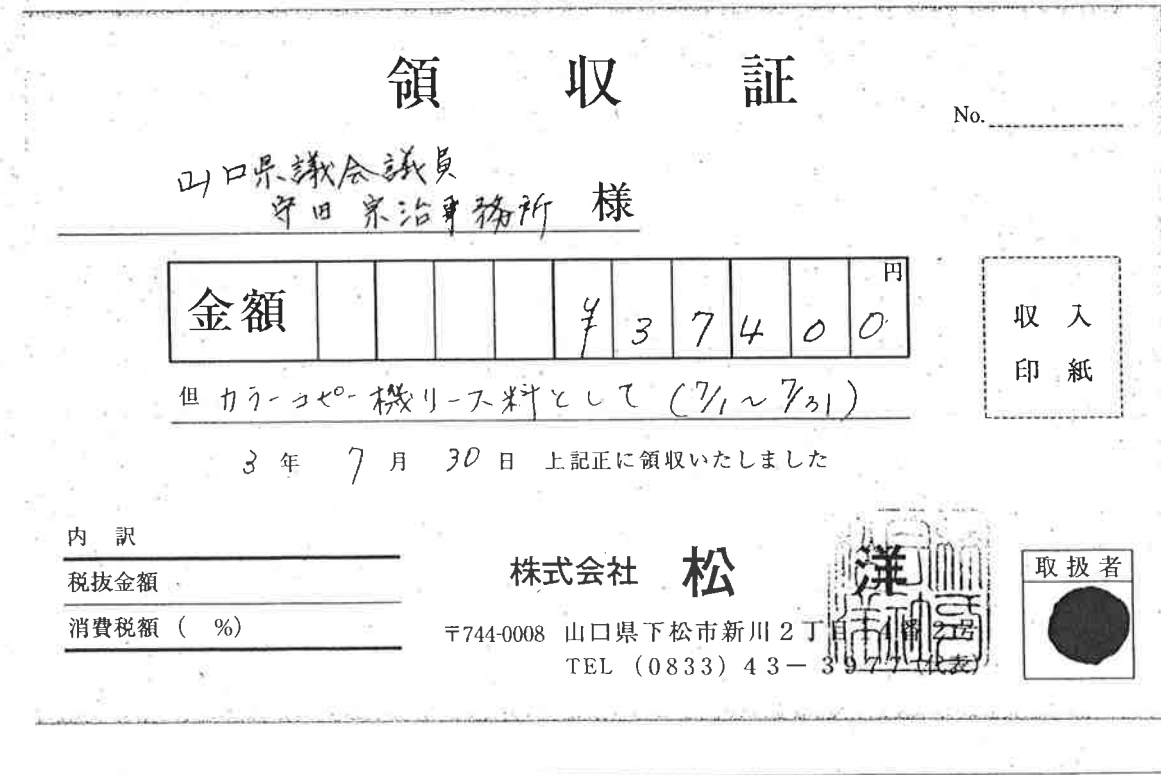 領 収 証
No.
山口県議会議員
守田 宗治事務所 様
金額 ¥37400 円
収 入
印 紙
但 カラーコピー機リース料として (7/1~7/31)
3 年 7 月 30 日 上記正に領収いたしました
内 訳
税抜金額
消費税額 ( %)
株式会社 松 洋
取扱者
〒744-0008 山口県下松市新川2丁目1番2号
TEL (0833) 43-3977 (代表)